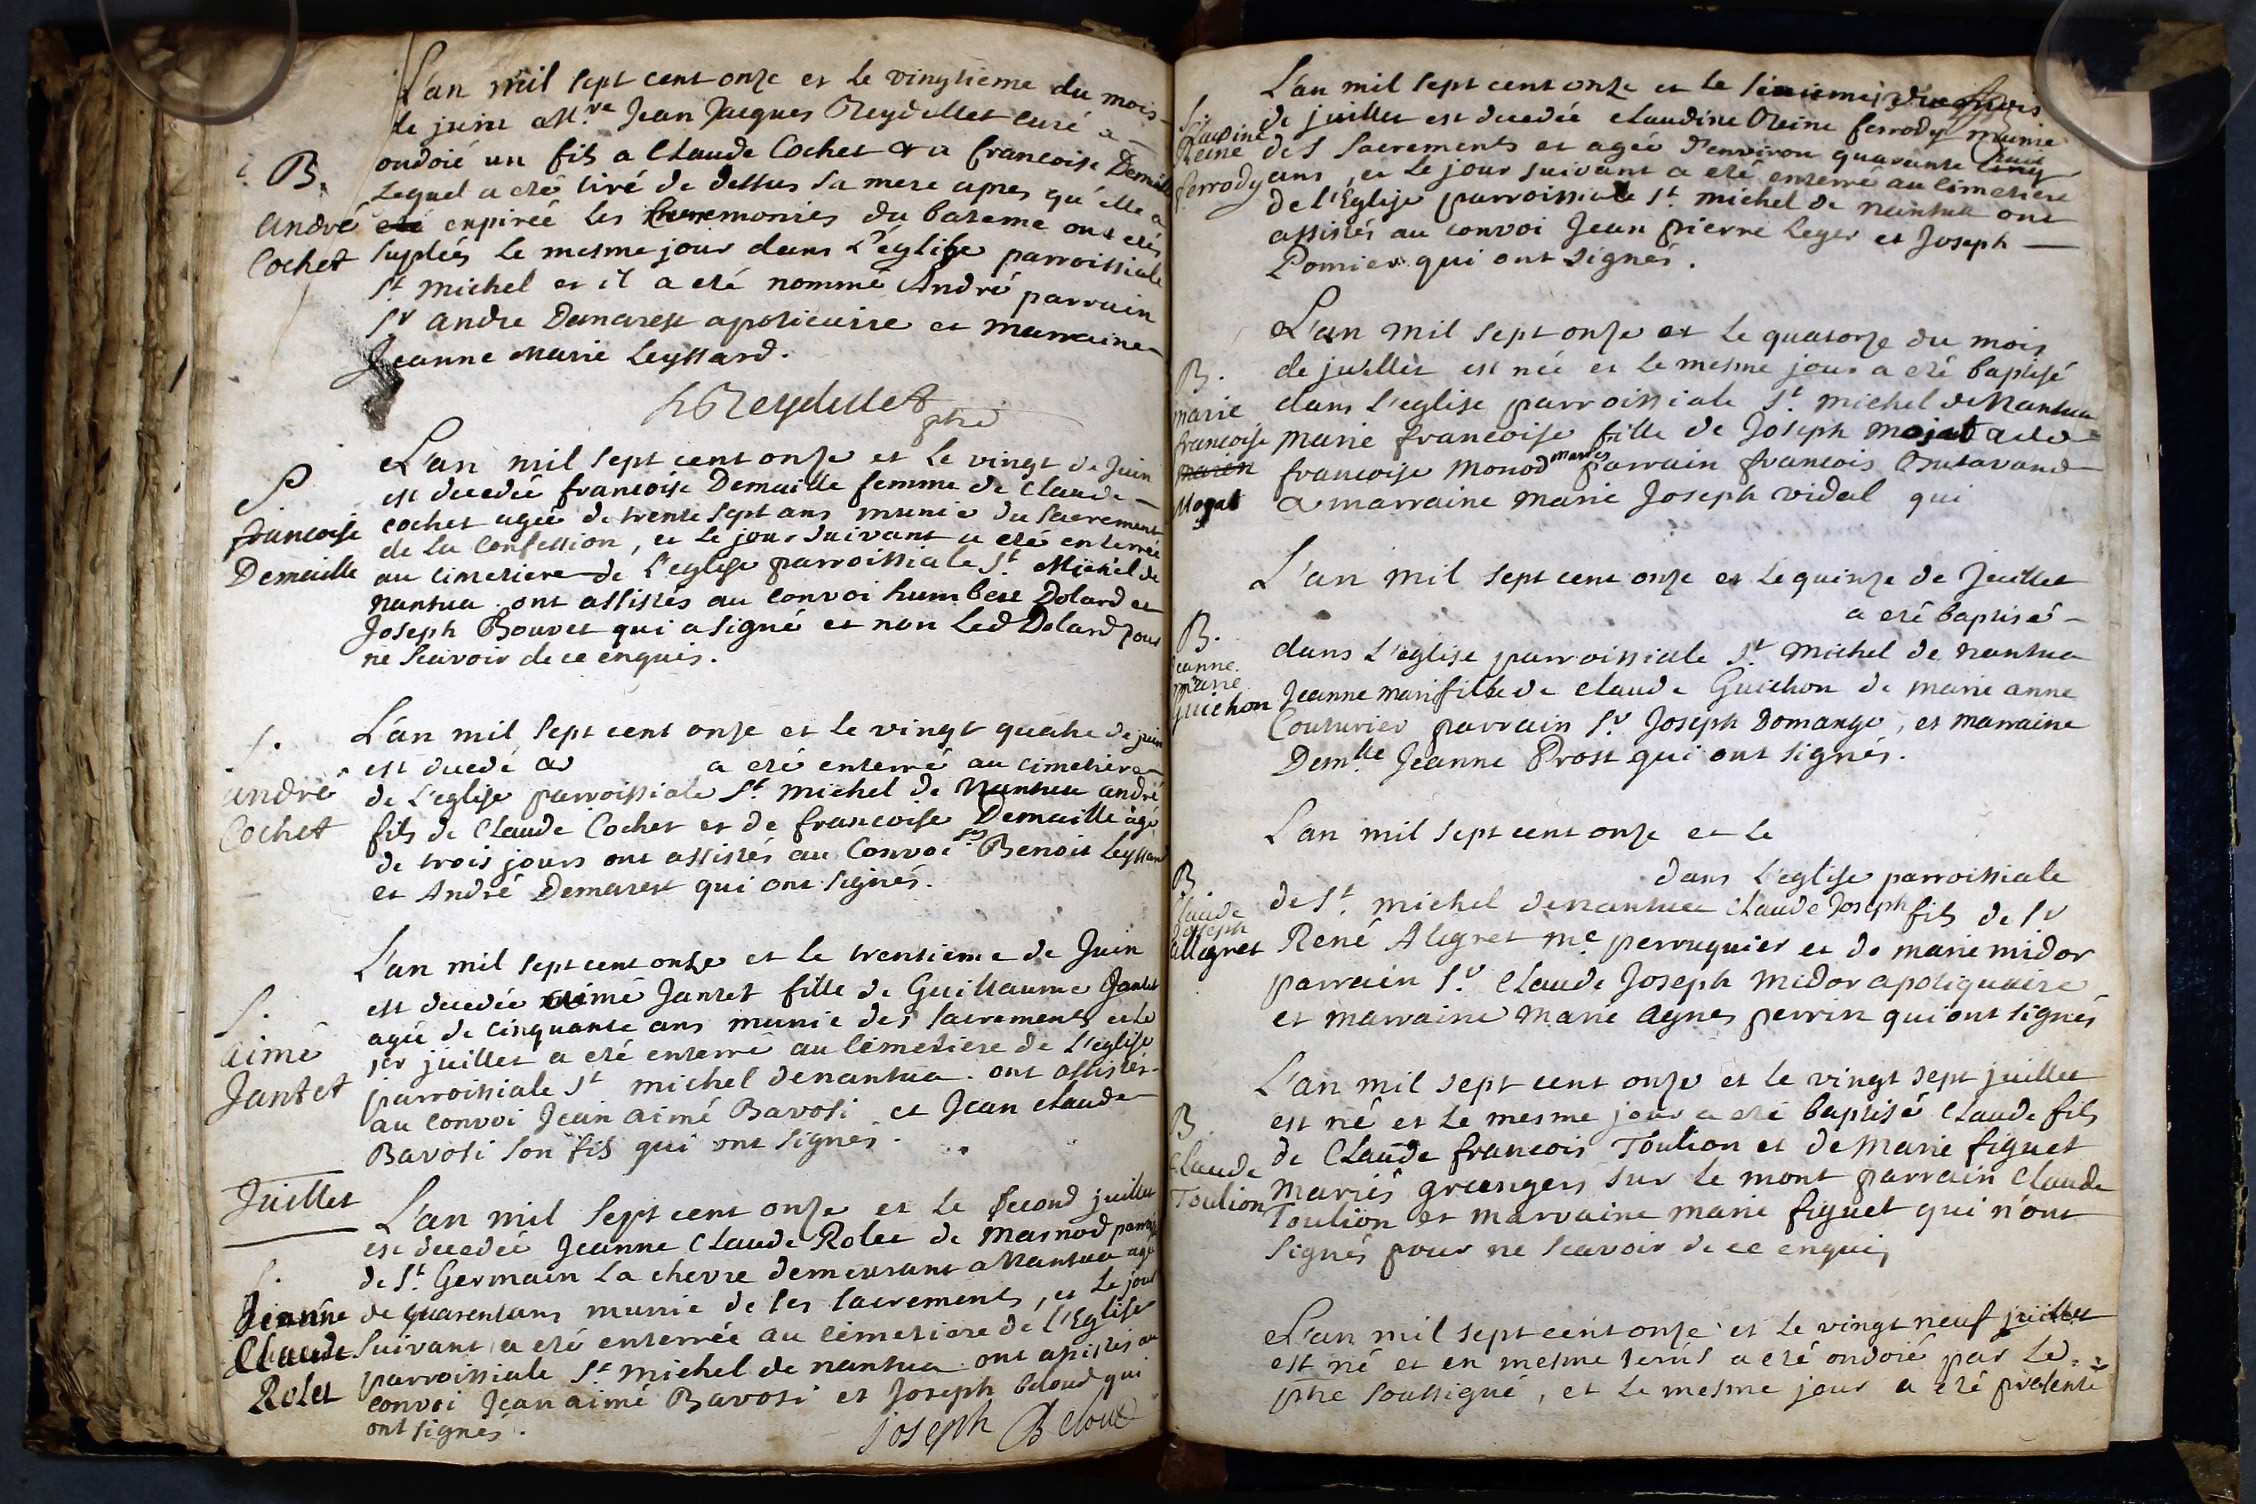 L'an mil sept cent onze et le vingtieme du mois
de juin a Mre Jean Jacques Reydellet curé a
ondoié un fils a Claude Cochet & a francoise Demaille
B. lequel a eté tiré de dessus sa mere apres qu'elle a
André expirée les ceremonies du bateme ont etés
Cochet supleés le mesme jour dans L'église parroissiale
St michel et il a eté nommé André parrain
Sr andre Demarest apoticaire et marraine
Jeanne Marie Leyssard.
Reydellet
ptre
L'an mil sept cent onze et Le vingt de Juin
S est decedée francoise Demaille femme de Claude
francoise cochet agée de trente sept ans munie du sacrement
Demaille de la Confession, et le jour suivant a eté enterrée
au cimetiere de L'eglise parroissiale St Michel de
nantua ont assistés au convoi humbert Dolard et
Joseph Bouvet qui a signé et non Led Dolard pour
ne scavoir de ce enquis.
L'an mil sept cent onze et le vingt quatre de juin
S. est decedé a eté enterré au cimetiere
André de L'eglise parroissiale St michel de Nantua andré
Cochet fils de Claude Cochet et de francoise Demaille agé
de trois jours ont assistés au Convoi Srs Benoit Leyssard
et André Demarest qui ont signés.
L'an mil sept cent onze et le trentieme de Juin
S. est decedée aimé Jantet fille de Guillaume Jantet
aimé agée de cinquante ans munie des sacrements et le
Jantet 1er juillet a eté enterré au Cimetiere de L'eglise
parroissiale St michel de nantua. ont assistés
au convoi Jean aimé Bavosi et Jean claude
Bavosi son fils qui ont signés.
Juillet
L'an mil sept cent onze et le second juillet
est decedée Jeanne Claude Rolet de Marnod
S. de St Germain la chevre demeurant a Nantua agée
Jeanne de quarent ans munie de ses sacrements, et Le jour
Claude suivant a eté enterrée au cimetiere de L'Eglise
Rolet parroissiale St michel de nantua ont assistés au
convoi Jean aimé Bavosi et Joseph beloud qui
ont signés.
joseph Beloud
L'an mil sept cent onze et le du mois
S. de juillet est decedée claudine Reine ferrody munie
Claudine
Reine des Sacrements et agée d'environ quarante cinq
ferrody ans, et le jour suivant a eté enterré au cimetiere
de l'Eglise parroissiale St michel de nantua ont
assistés au convoi Jean pierre Leger et Joseph
Pomier qui ont signés.
L'an mil sept onze et le quatorze du mois
B. de juillet est née et le mesme jour a eté baptisé
marie dans L'eglise parroissiale St michel de Nantua
francoise marie francoise fille de Joseph mojat a et de
marin francoise Monod mariés parrain francois Butavand
Mojat & marraine marie Joseph vidal qui
L'an mil sept cent onze et le quinze de Juillet
a eté baptisé
B. dans L'eglise parroissiale St michel de nantua
Jeanne
marie
Guichon Jeanne mari fille de claude Guichon de marie anne
Couturier parrain Sr Joseph Domange, et marraine
Demlle Jeanne Prost qui ont signés.
L'an mil sept cent onze et le
B dans L'eglise parroissiale
Claude de St michel de nantua Claude Joseph fils de Sr
Joseph
Allegret René Alegret me perruquier et de marie midor
parrain Sr claude Joseph midor apotiquaire
et marraine marie Agnes perrin qui ont signés
L'an mil sept cent onze et le vingt sept juillet
B. est né et le mesme jour a eté baptisé Claude fils
Claude de Claude francois Toulion et de Marie figuet
Toulion mariés grangers sur le mont parrain claude
Toulion et marraine marie figuet qui n'ont
Signés pour ne scavoir de ce enquis
L'an mil sept cent onze et le vingt neuf juillet
est né et en mesme tems a eté ondoié par Le
ptre soussigné, et le mesme jour a eté presenté